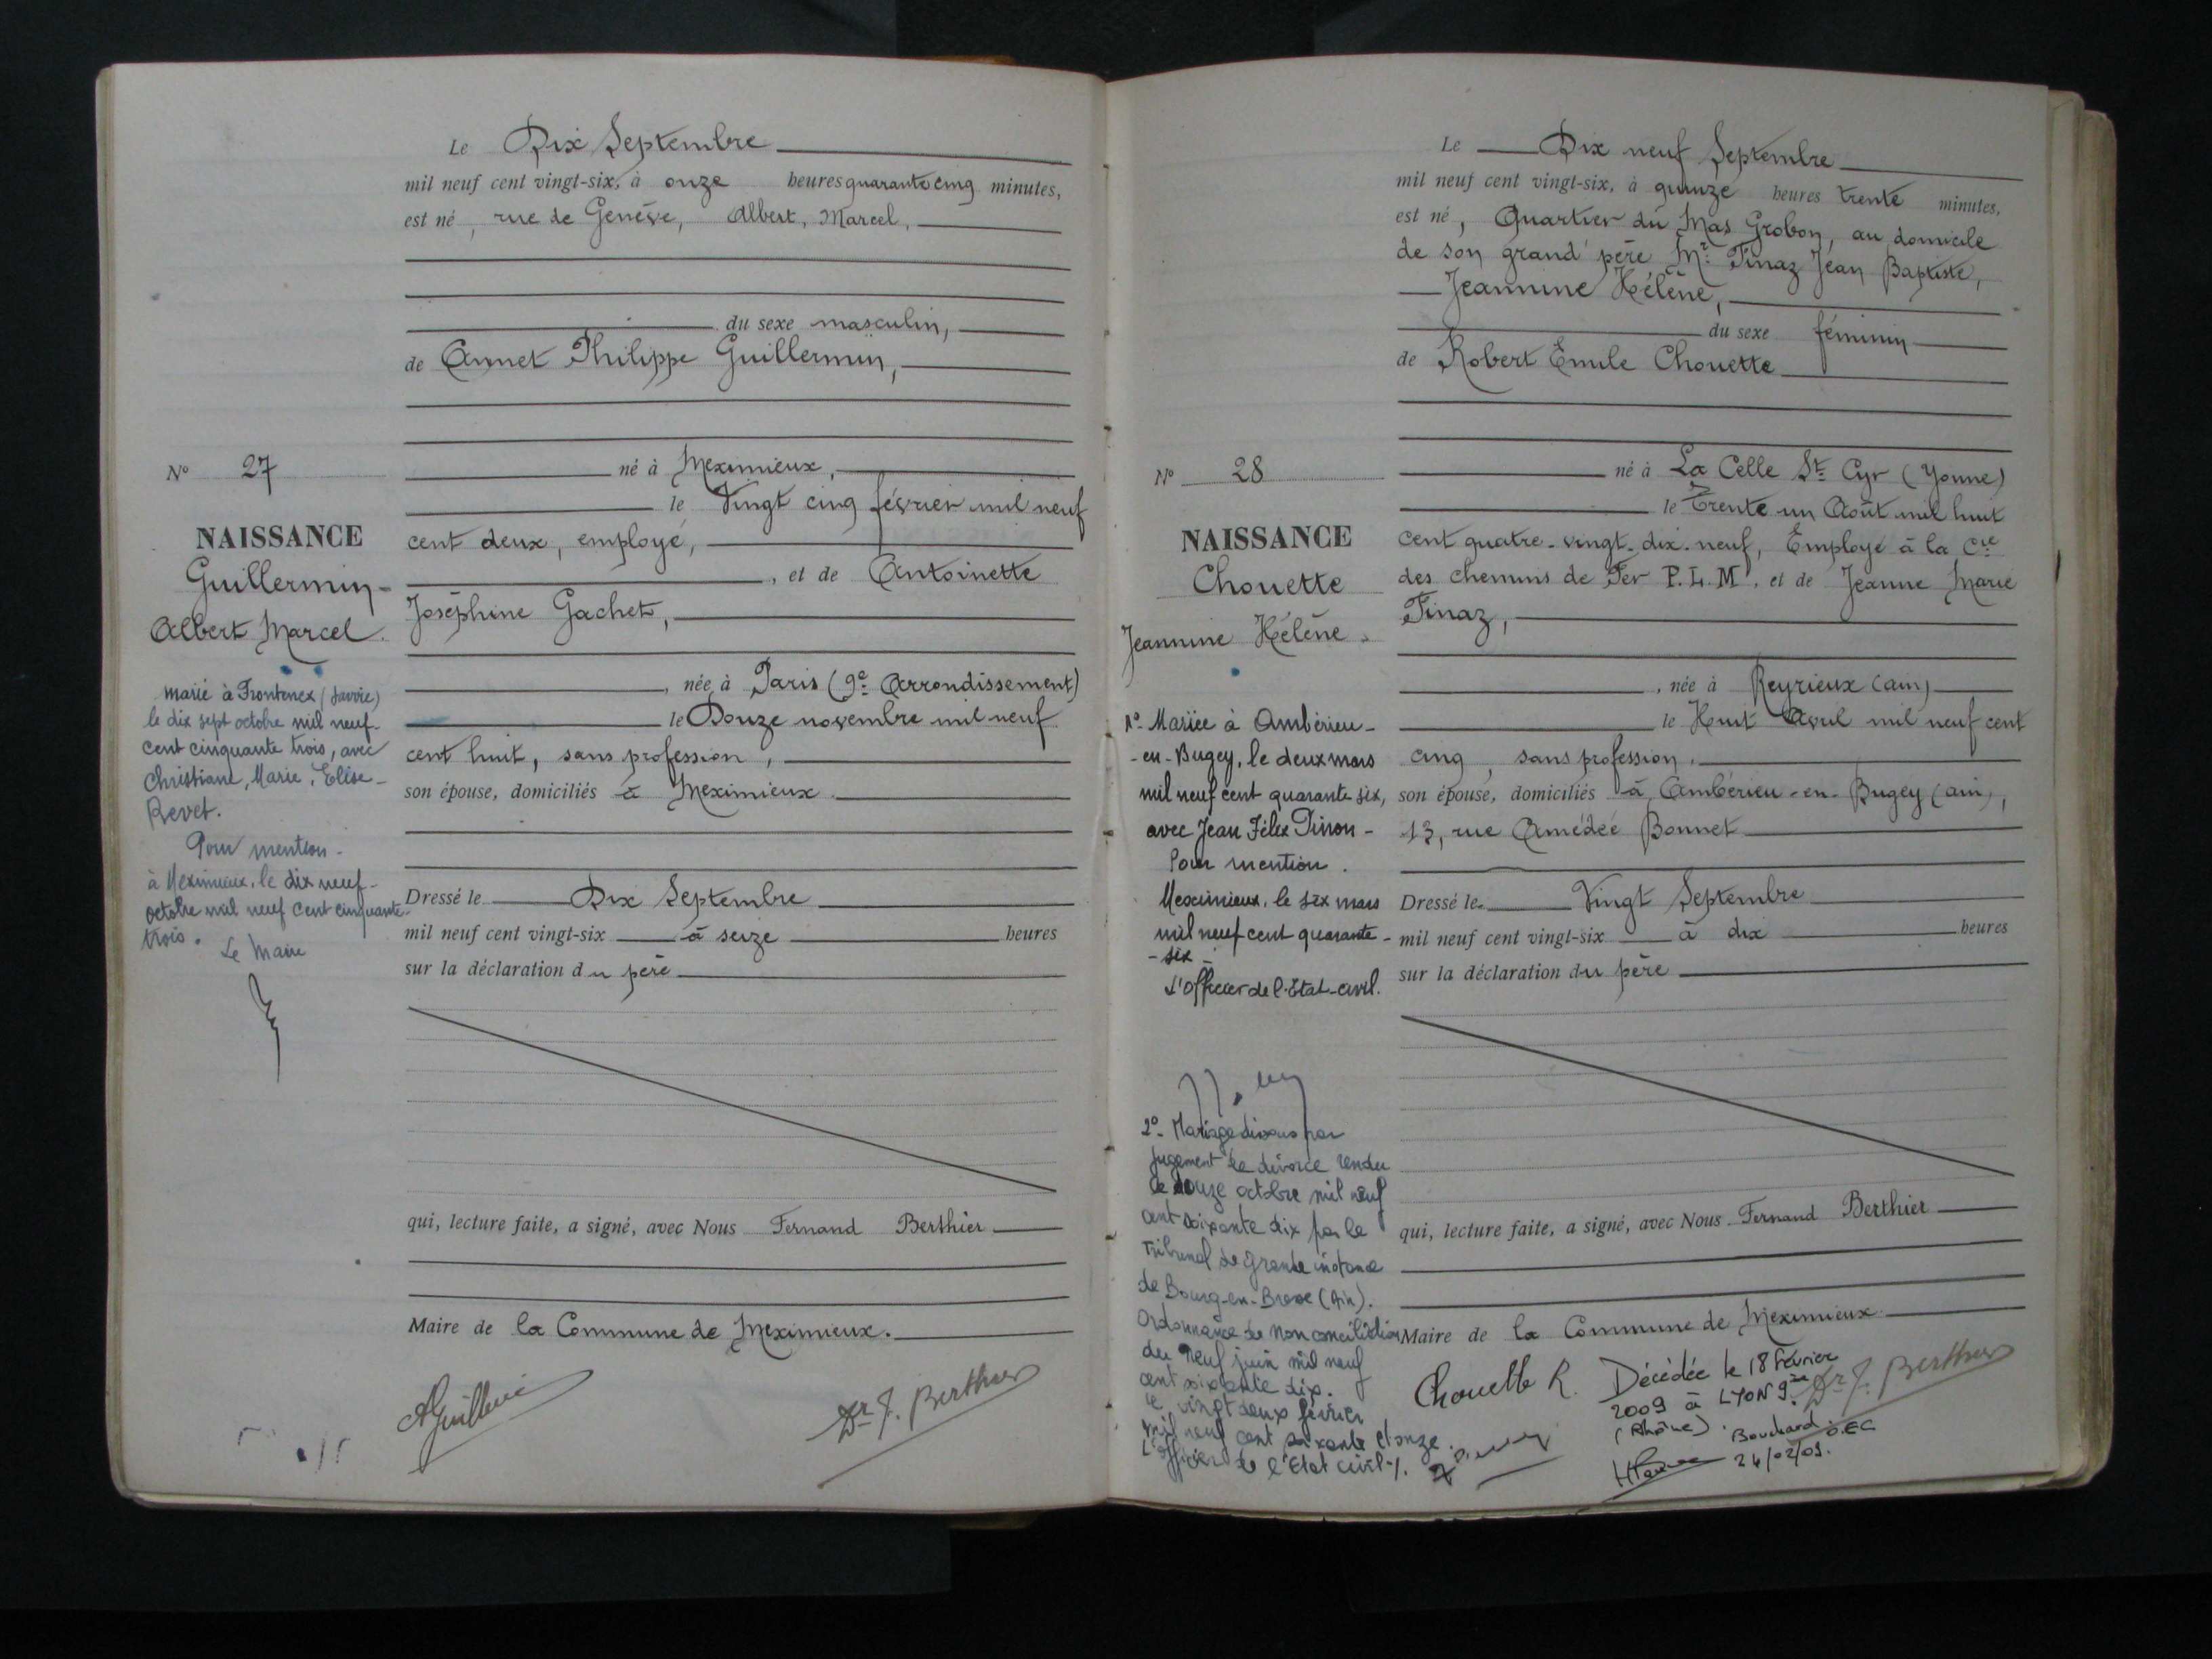 Le Dix Septembre
mil neuf cent vingt-six, à onze heures quarante cinq minutes,
est né, rue de Genève, Albert, Marcel,
du sexe masculin,
de Annet Philippe Guillermin,
né à Meximieux,
le Vingt cinq février mil neuf
cent deux, employé,
, et de Antoinette
Joséphine Gachet,
, née à Paris (9e Arrondissement)
le Douze novembre mil neuf
cent huit, sans profession,
son épouse, domiciliés à Meximieux.
Dressé le Dix Septembre
mil neuf cent vingt-six à seize heures
sur la déclaration du père
qui, lecture faite, a signé, avec Nous Fernand Berthier
Maire de la Commune de Meximieux.
AGuillermin
Dr F. Berthier
N° 27
NAISSANCE
Guillermin
Albert Marcel.
marié à Frontenex (Savoie)
le dix sept octobre mil neuf
cent cinquante trois, avec
Christiane, Marie, Elise
Revet.
Pour mention
à Meximieux, le dix neuf
octobre mil neuf cent cinquante
trois.
Le Maire
Le Dix neuf Septembre
mil neuf cent vingt-six, à quinze heures trente minutes,
est né, Quartier du Mas Grobon, au domicile
de son grand' père Mr Tinaz Jean Baptiste,
Jeannine Hélène,
du sexe féminin
de Robert Emile Chouette
né à La Celle St Cyr (Yonne)
le Trente un Août mil huit
cent quatre-vingt-dix-neuf, Employé à la Cie
des chemins de Fer P.L.M., et de Jeanne Marie
Tinaz,
, née à Reyrieux (Ain)
le Huit Avril mil neuf cent
cinq, sans profession,
son épouse, domiciliés à Ambérieu-en-Bugey (Ain),
13, rue Amédée Bonnet
Dressé le Vingt Septembre
mil neuf cent vingt-six à dix heures
sur la déclaration du père
qui, lecture faite, a signé, avec Nous Fernand Berthier
Maire de la Commune de Meximieux.
Chouette R.
Dr F. Berthier
Décédée le 18 Février
2009 à LYON 9ème
(Rhône).
Bouchard O.EC
24/02/09.
N° 28
NAISSANCE
Chouette
Jeannine Hélène.
1°- Mariée à Ambérieu-
-en-Bugey, le deux mars
mil neuf cent quarante six,
avec Jean Félix Pinon-
Pour mention.
Meximieux, le six mars
mil neuf cent quarante-
-six-
L'Officier de l'Etat-civil.
2°- Mariage dissous par
jugement de divorce rendu
le douze octobre mil neuf
cent soixante dix par le
Tribunal de grande instance
de Bourg-en-Bresse (Ain).
Ordonnance de non conciliation
du neuf juin mil neuf
cent soixante dix.
Le vingt deux février
mil neuf cent soixante et onze.
L'officier de l'Etat civil ./.